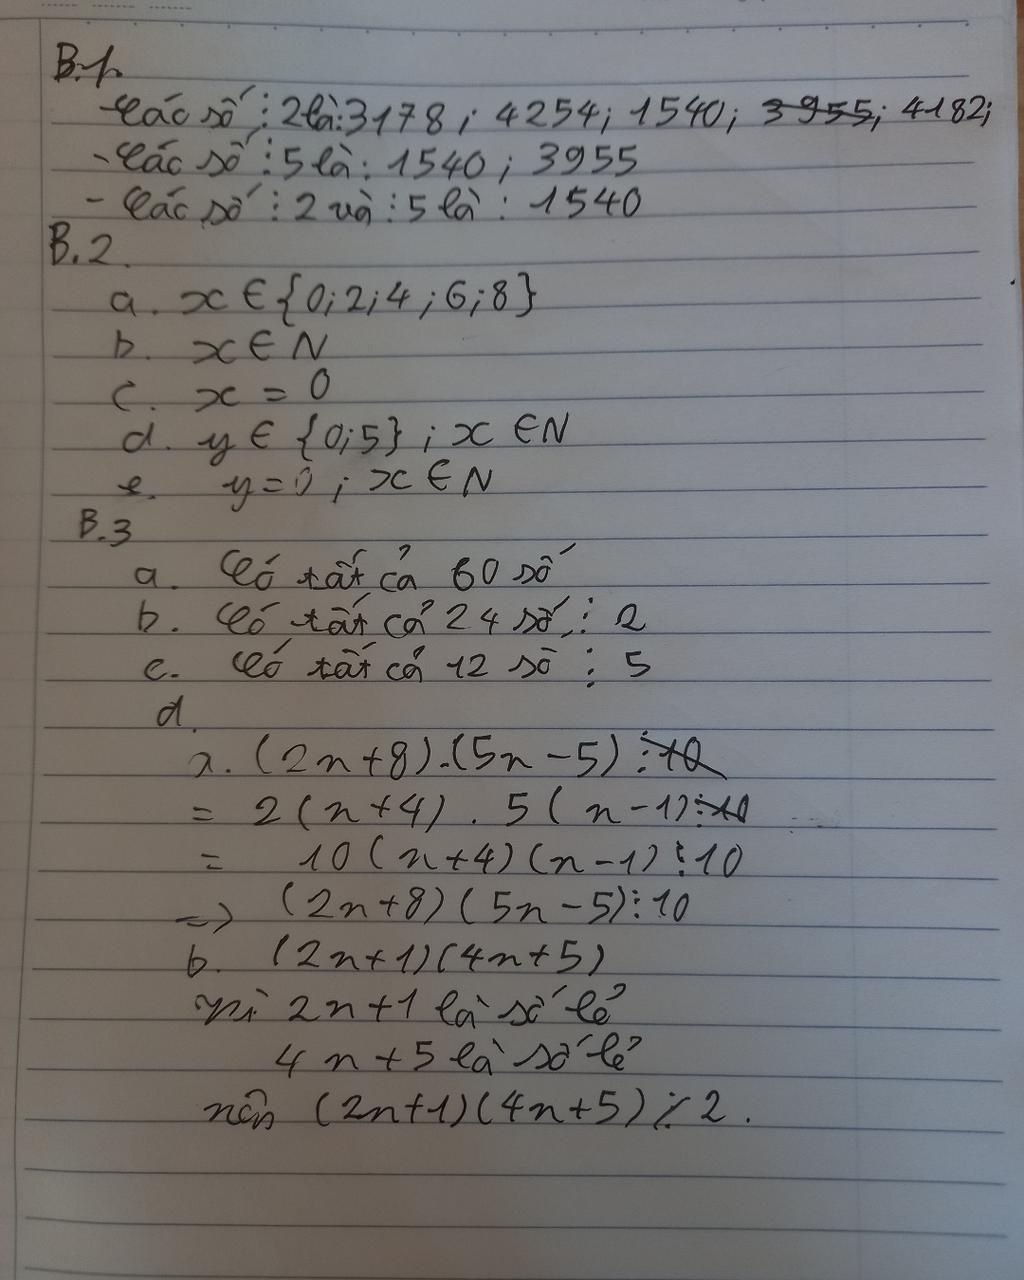 B.1.
- Các số ⋮ 2 là: 3178; 4254; 1540; 3955; 4182;
- Các số ⋮ 5 là: 1540; 3955
- Các số ⋮ 2 và ⋮ 5 là: 1540
B.2.
a. x ∈ {0;2;4;6;8}
b. x ∈ N
c. x = 0
d. y ∈ {0;5}; x ∈ N
e. y = 0; x ∈ N
B.3
a. Có tất cả 60 số
b. Có tất cả 24 số ⋮ 2
c. Có tất cả 12 số ⋮ 5
d.
a. (2n+8).(5n-5) ⋮ 10
= 2(n+4).5(n-1) ⋮ 10
= 10(n+4)(n-1) ⋮ 10
=> (2n+8)(5n-5) ⋮ 10
b. (2n+1)(4n+5)
Vì 2n+1 là số lẻ
4n+5 là số lẻ
nên (2n+1)(4n+5) ⋮̸ 2.